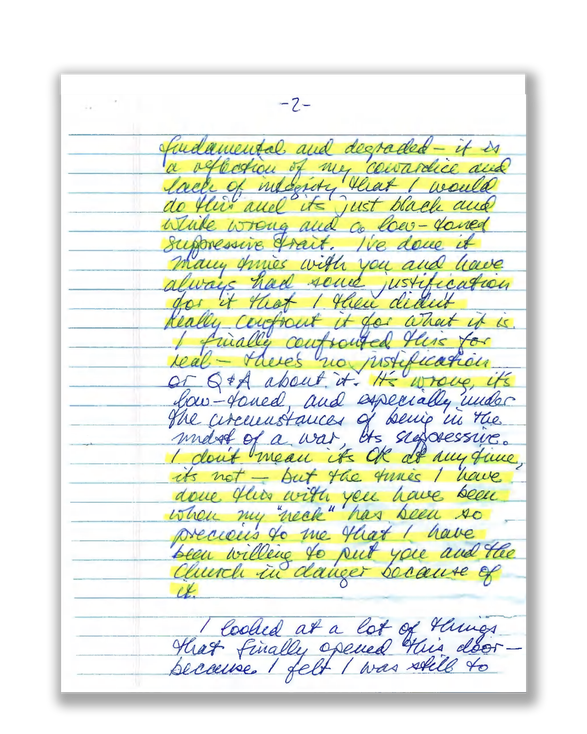 -2-
fundamental and degraded — it is
a reflection of my cowardice and
lack of integrity that I would
do this and its just black and
white wrong and a low-toned
suppressive trait. I've done it
many times with you and have
always had some justification
for it that I then didnt
really confront it for what it is.
I finally confronted this for
real — there's no justification
or Q&A about it. Its wrong, it's
low-toned, and especially under
the circumstances of being in the
midst of a war, its suppressive.
I don't mean its OK at any time,
its not — but the times I have
done this with you have been
when my "neck" has been so
precious to me that I have
been willing to put you and the
Church in danger because of
it.
I looked at a lot of things
that finally opened this door —
because I felt I was still to